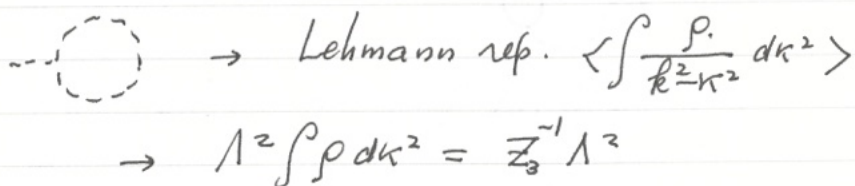 → Lehmann rep. <∫ ρ. / k²-κ² dκ²>
→ Λ² ∫ρ dκ² = Z₃⁻¹ Λ²